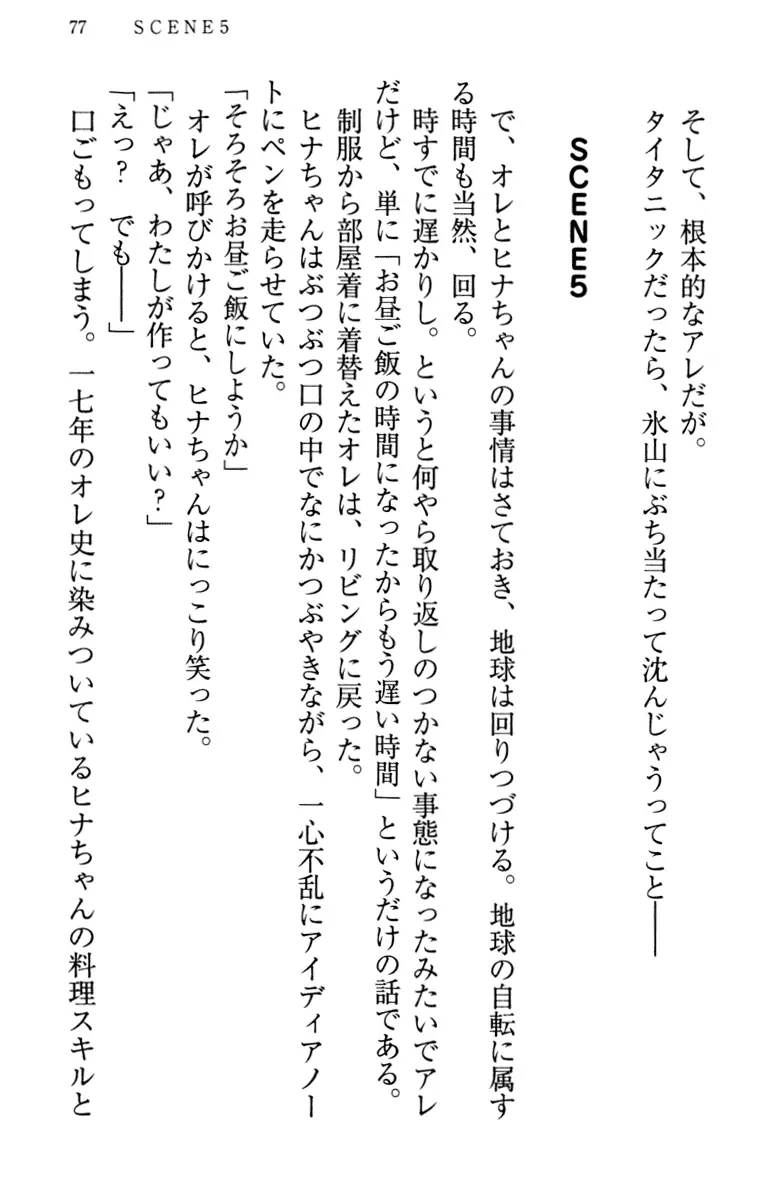 77　SCENE5
そして、根本的なアレだが。
タイタニックだったら、氷山にぶち当たって沈んじゃうってこと――
SCENE5
で、オレとヒナちゃんの事情はさておき、地球は回りつづける。地球の自転に属す
る時間も当然、回る。
時すでに遅かりし。というと何やら取り返しのつかない事態になったみたいでアレ
だけど、単に「お昼ご飯の時間になったからもう遅い時間」というだけの話である。
制服から部屋着に着替えたオレは、リビングに戻った。
ヒナちゃんはぶつぶつ口の中でなにかつぶやきながら、一心不乱にアイディアノー
トにペンを走らせていた。
「そろそろお昼ご飯にしようか」
オレが呼びかけると、ヒナちゃんはにっこり笑った。
「じゃあ、わたしが作ってもいい？」
「えっ？　でも――」
口ごもってしまう。一七年のオレ史に染みついているヒナちゃんの料理スキルと